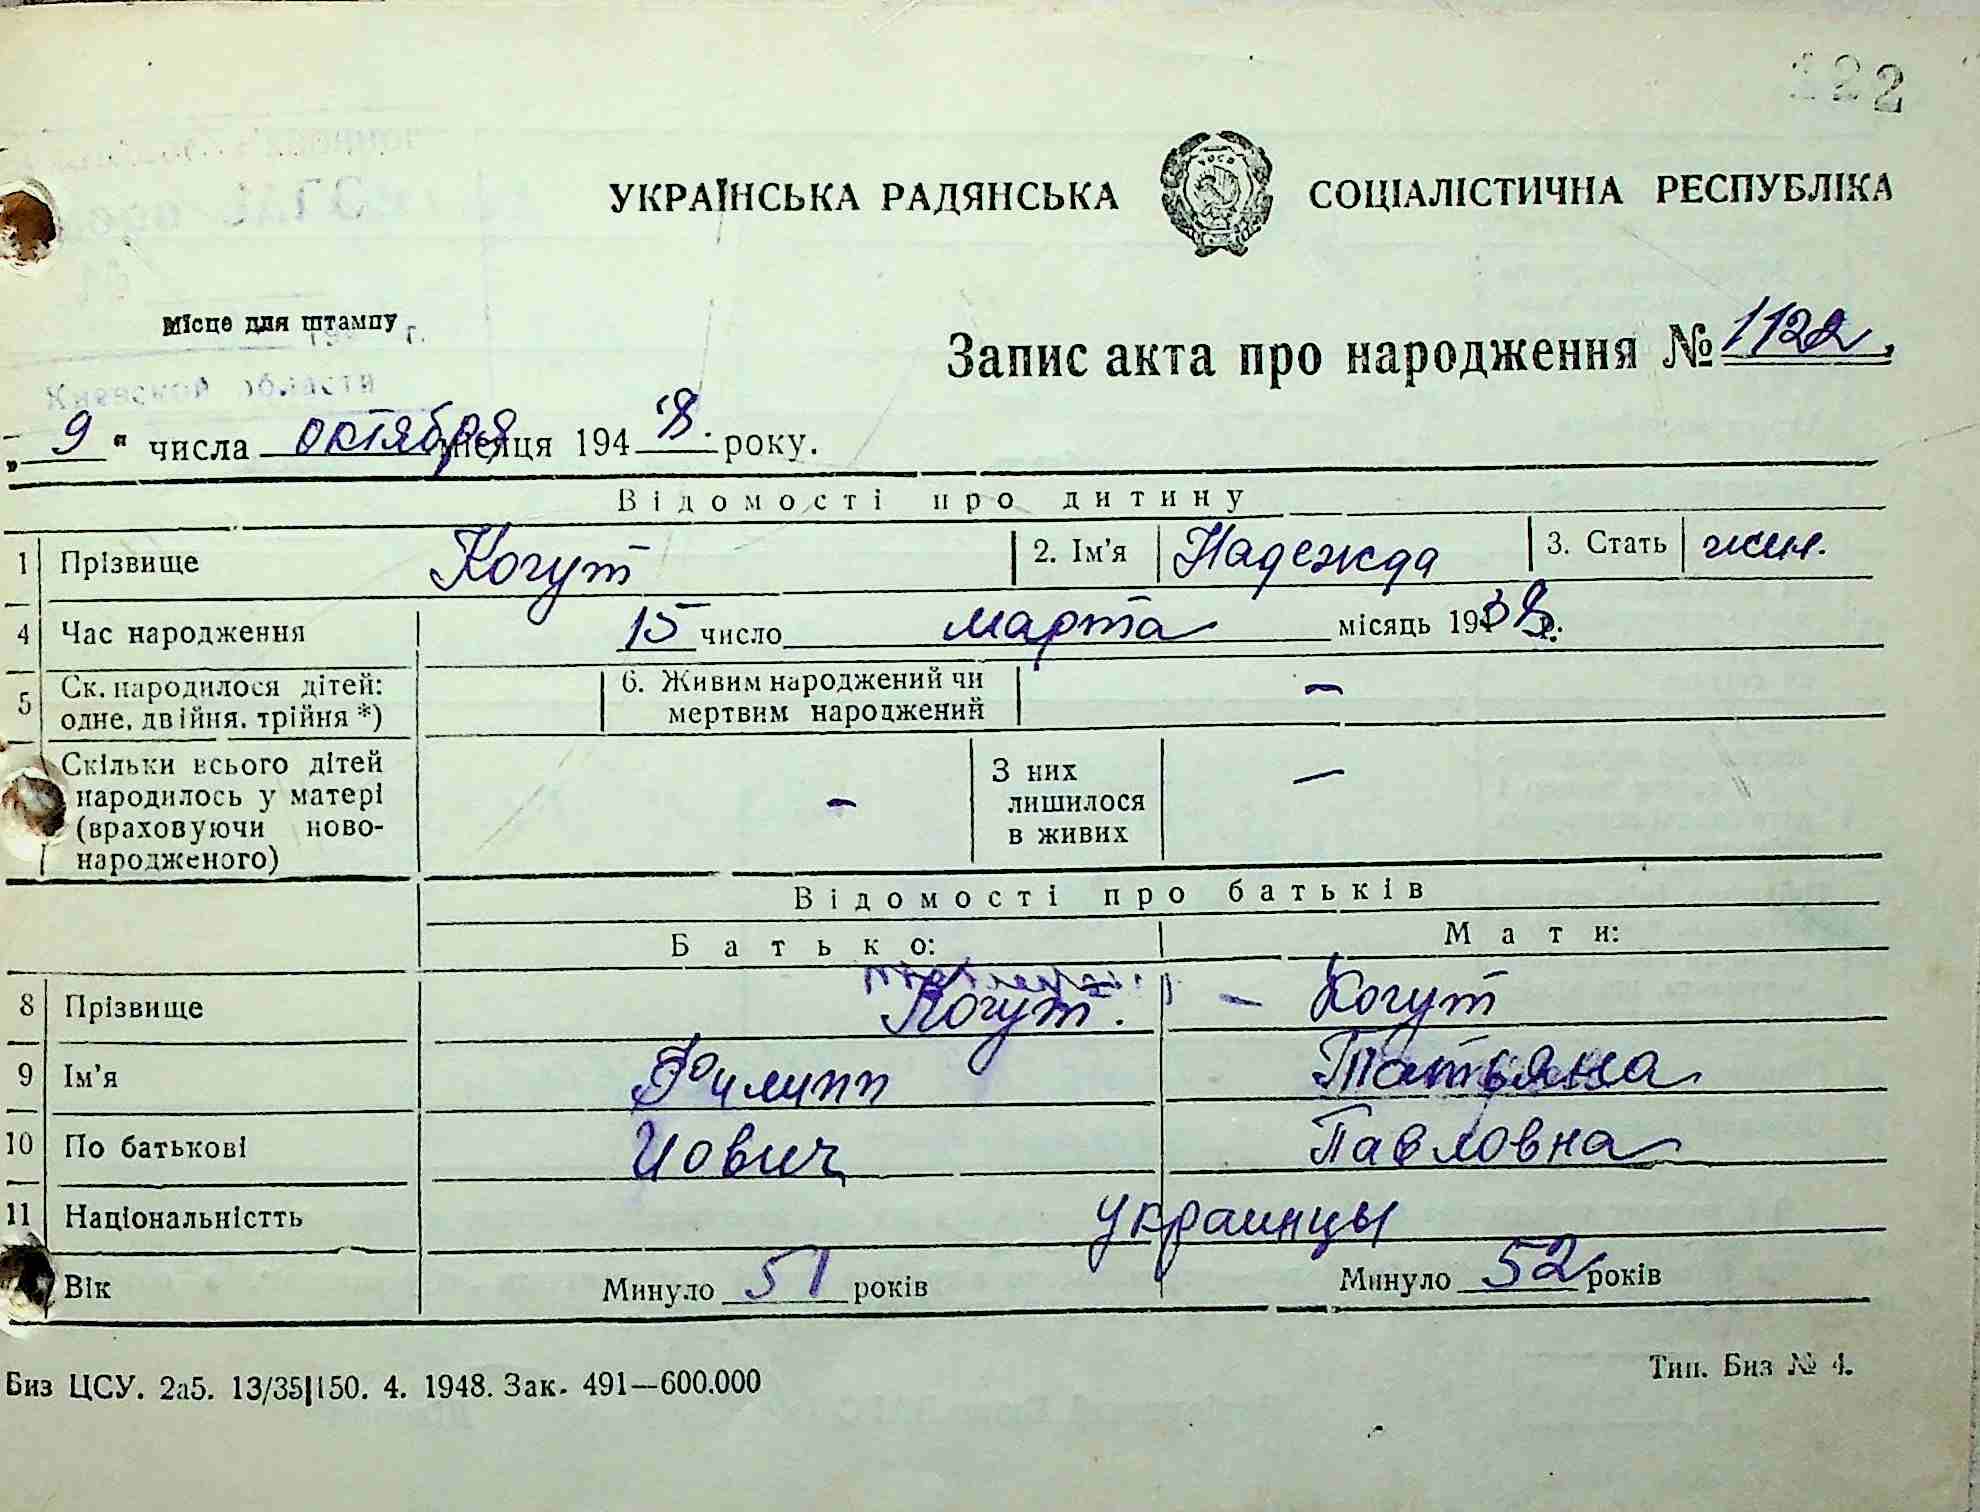 122
УКРАЇНСЬКА РАДЯНСЬКА СОЦІАЛІСТИЧНА РЕСПУБЛІКА
Місце для штампу
Киевской области
Запис акта про народження № 1122
„9“ числа октября місяця 1948 року.
Відомості про дитину
1 Прізвище Когут 2. Ім'я Надежда 3. Стать жен.
4 Час народження 15 число марта місяць 1938 р.
5 Ск. народилося дітей: одне, двійня, трійня *) 6. Живим народжений чи мертвим народжений –
Скільки всього дітей народилось у матері (враховуючи ново-народженого) – З них лишилося в живих –
Відомості про батьків
Батько: Мати:
8 Прізвище Когут. – Когут
9 Ім'я Филипп Татьяна
10 По батькові Иович Павловна
11 Національністть украинцы
Вік Минуло 51 років Минуло 52 років
Биз ЦСУ. 2а5. 13/35|150. 4. 1948. Зак. 491—600.000
Тип. Биз № 4.